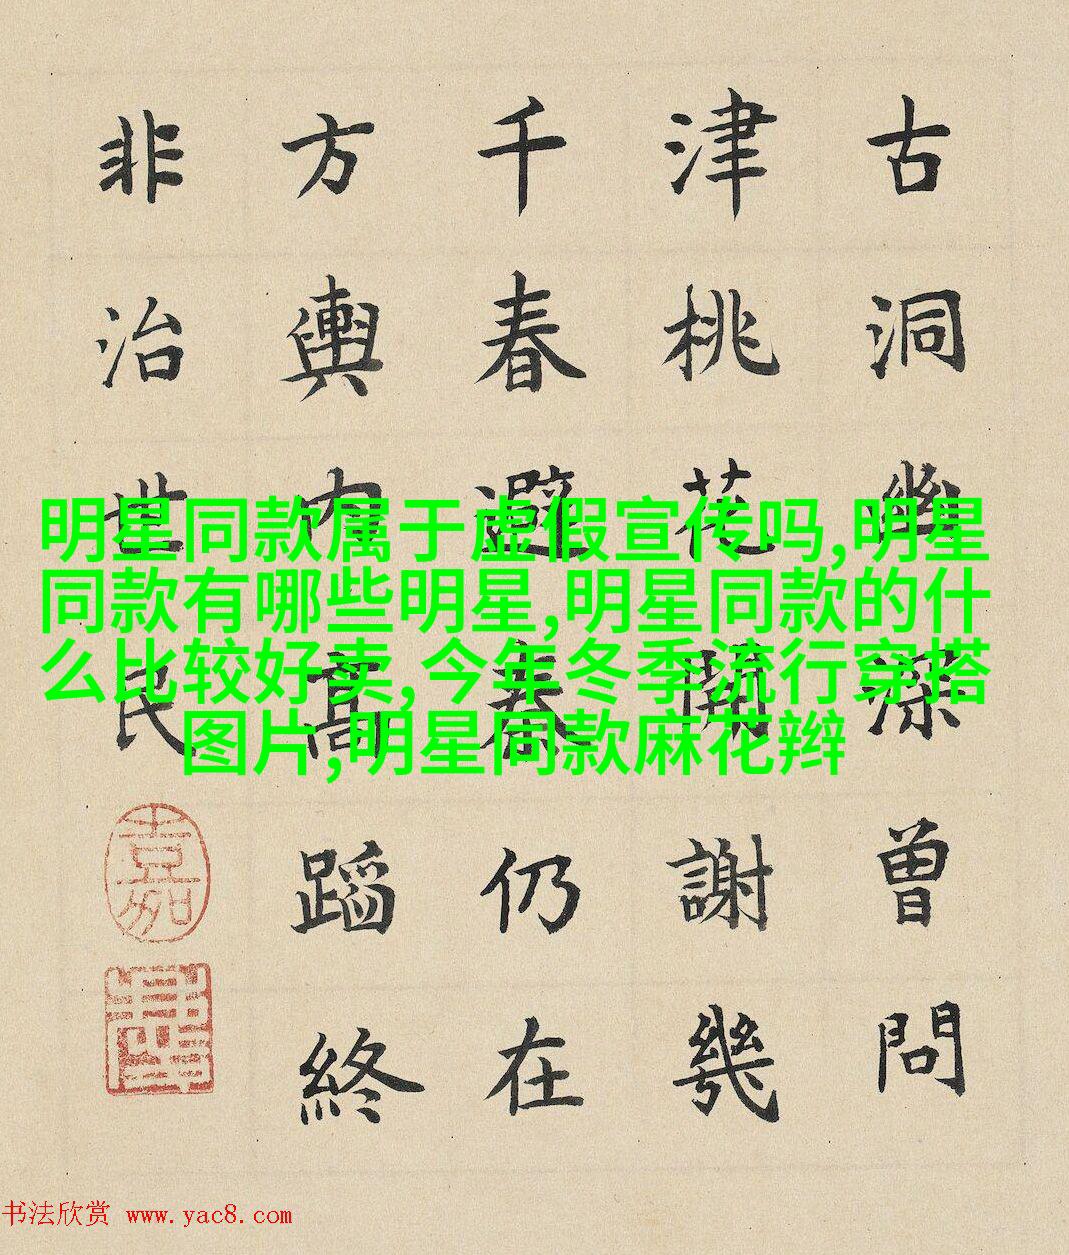 古洞幽深曾問
津桃花開謝幾
千春避秦仍在
方輿内高蹈終
非治世民
明星同款属于虚假宣传吗,明星
同款有哪些明星,明星同款的什
么比较好卖,今年冬季流行穿搭
图片,明星同款麻花辫
书法欣赏 www.yac8.com